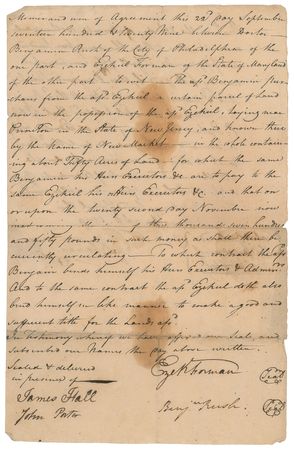 Memorandum of Agreement this 22d day September
seventeen hundred & Ninety Nine between Doctor
Benjamin Rush of the City of Philadelphia of the
one part, and Ezekiel Forman of the State of Maryland
of the other part to wit The afd Benjamin pur-
chases from the afd Ezekiel a certain parcel of Land
now in the possession of the afd Ezekiel, laying near
in the State of New Jersey, and known there
by the Name of New Market in the whole contain-
ing about Fifty Acres of Land - for which the same
Benjamin his Heirs Executors &c are to pay to the
same Ezekiel his Heirs Executors &c. and that on
or upon the twenty second day November now
next of this thousand seven hundred
and fifty pounds in such money as shall then be
currently circulating - To which contract the afd
Benjamin binds himself his Heirs Executors & Adminrs
And to the same contract the afd Ezekiel doth also
bind himself in like manner to make a good and
sufficient title for the Lands afd.
In testimony whereof we have affixed our Seals, and
subscribed our Names the day above written.
Sealed & delivered
in presence of
Ezek Forman Seal
James Hall
Benjn Rush Seal
John Porter